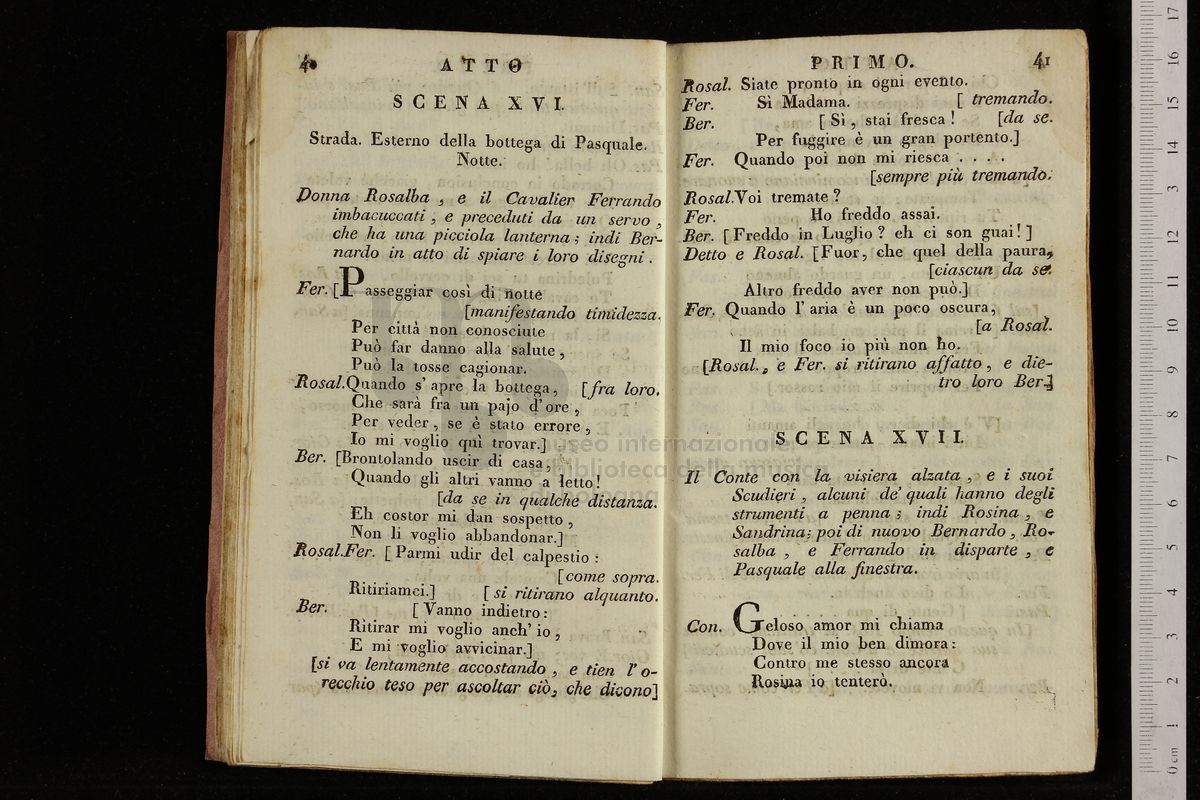 4
ATTO
SCENA XVI.
Strada. Esterno della bottega di Pasquale.
Notte.
Donna Rosalba , e il Cavalier Ferrando
imbacuccati , e preceduti da un servo ,
che ha una picciola lanterna ; indi Ber-
nardo in atto di spiare i loro disegni .
Fer. [Passeggiar così di notte
[manifestando timidezza.
Per città non conosciute
Può far danno alla salute ,
Può la tosse cagionar.
Rosal. Quando s' apre la bottega, [fra loro.
Che sarà fra un pajo d' ore ,
Per veder , se è stato errore ,
Io mi voglio quì trovar.]
Ber. [Brontolando uscir di casa,
Quando gli altri vanno a letto!
[da se in qualche distanza.
Eh costor mi dan sospetto ,
Non li voglio abbandonar.]
Rosal. Fer. [ Parmi udir del calpestio :
[come sopra.
Ritiriamci.] [ si ritirano alquanto.
Ber. [ Vanno indietro:
Ritirar mi voglio anch' io ,
E mi voglio avvicinar.]
[si va lentamente accostando , e tien l' o-
recchio teso per ascoltar ciò, che dicono]
PRIMO. 41
Rosal. Siate pronto in ogni evento.
Fer. Sì Madama. [ tremando.
Ber. [ Sì , stai fresca ! [da se.
Per fuggire è un gran portento.]
Fer. Quando poi non mi riesca . . . .
[sempre più tremando.
Rosal. Voi tremate ?
Fer. Ho freddo assai.
Ber. [ Freddo in Luglio ? eh ci son guai! ]
Detto e Rosal. [Fuor, che quel della paura,
[ciascun da se.
Altro freddo aver non può.]
Fer. Quando l' aria è un poco oscura,
[a Rosal.
Il mio foco io più non ho.
[Rosal. , e Fer. si ritirano affatto , e die-
tro loro Ber.]
SCENA XVII.
Il Conte con la visiera alzata , e i suoi
Scudieri , alcuni de' quali hanno degli
strumenti a penna ; indi Rosina , e
Sandrina; poi di nuovo Bernardo , Ro-
salba , e Ferrando in disparte , e
Pasquale alla finestra.
Con. Geloso amor mi chiama
Dove il mio ben dimora:
Contro me stesso ancora
Rosina io tenterò.
museo internazionale
e biblioteca della musica
0 cm 1 2 3 4 5 6 7 8 9 10 11 12 13 14 15 16 17